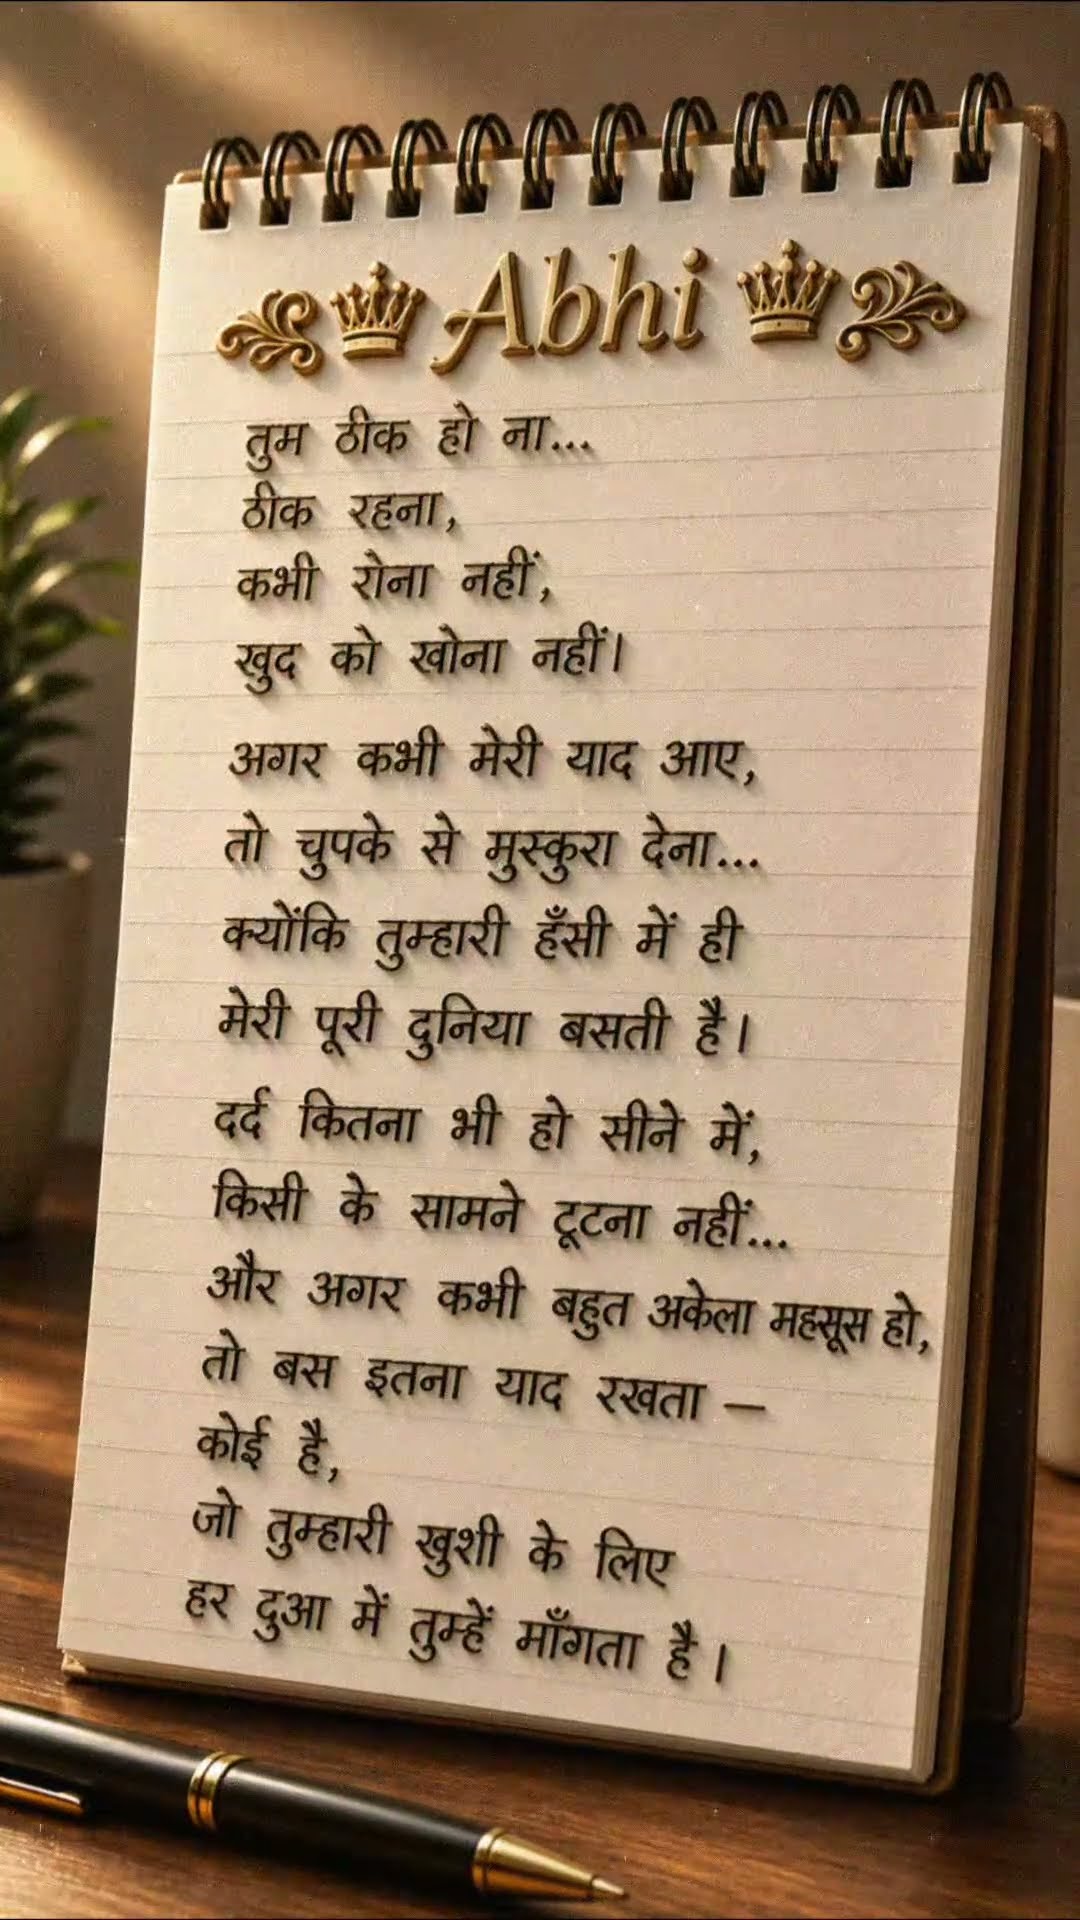 Abhi
तुम ठीक हो ना...
ठीक रहना,
कभी रोना नहीं,
खुद को खोना नहीं।
अगर कभी मेरी याद आए,
तो चुपके से मुस्कुरा देना...
क्योंकि तुम्हारी हँसी में ही
मेरी पूरी दुनिया बसती है।
दर्द कितना भी हो सीने में,
किसी के सामने टूटना नहीं...
और अगर कभी बहुत अकेला महसूस हो,
तो बस इतना याद रखता —
कोई है,
जो तुम्हारी खुशी के लिए
हर दुआ में तुम्हें माँगता है।